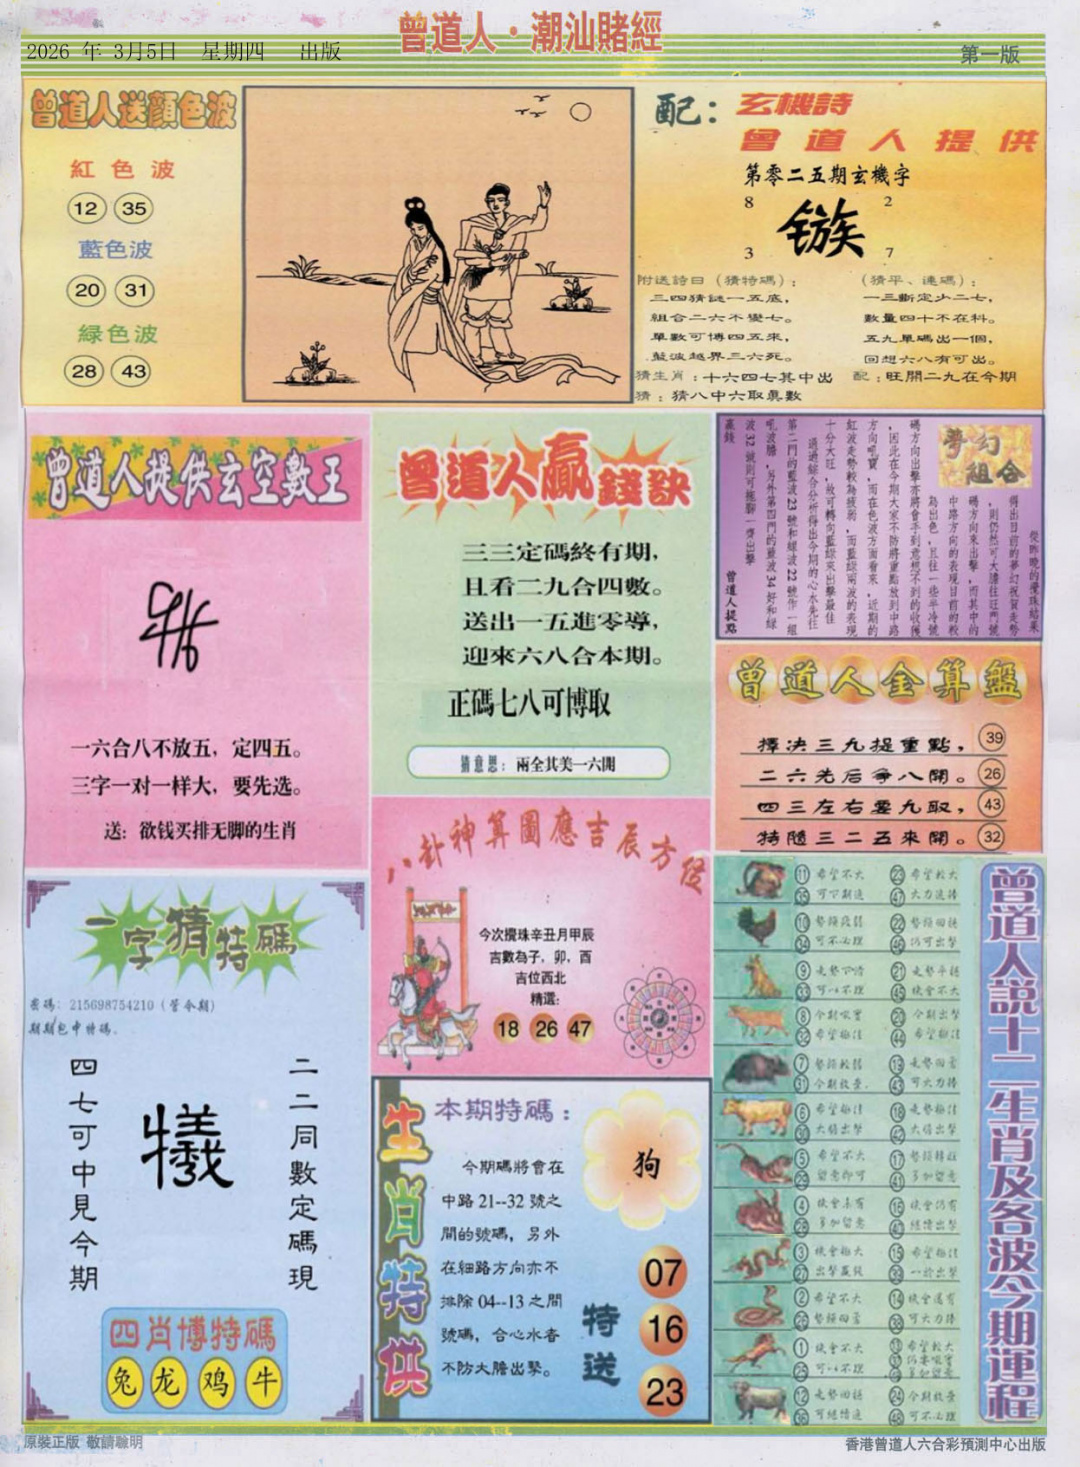 曾道人·潮汕賭經
2026 年 3月5日 星期四 出版
第一版
曾道人送顏色波
紅色波
12 35
藍色波
20 31
緑色波
28 43
配：玄機詩
曾道人提供
第零二五期玄機字
8 2
镞
3 7
附送詩曰（猜特碼）：
三四猜謎一五底，
組合二六不變七。
單數可博四五來，
藍波越界三六死。
（猜平、連碼）：
一三斷定少二七，
數量四十不在料。
五九單碼出一個，
回想六八有可出。
猜生肖：十六四七其中出
配：旺開二九在今期
猜：猜八中六取眞數
曾道人提供玄空數王
一六合八不放五，定四五。
三字一对一样大，要先选。
送：欲钱买排无脚的生肖
曾道人贏錢訣
三三定碼終有期，
且看二九合四數。
送出一五進零導，
迎來六八合本期。
正碼七八可博取
猜意思：兩全其美一六開
夢幻組合
從昨晚的攪珠結果
得出目前的夢幻祝賀走勢
，則仍然可大膽往旺門號
碼方向來出擊，而其中的
中路方向的表現目前的較
為出色，且往一些半冷號
碼方向出擊亦將會手到意想不到的收穫
，因此在今期大家不防將重點放到中路
方向吼寶，而在色波方面看來，近期的
紅波走勢較為疲弱，而藍綠兩波的表現
十分大旺，故可轉向藍綠來出擊最佳
通過綜合分析得出今期的心水先往
第二門的藍波23號和綠波22號作一組
吼波膽，另外第四門的藍波34好和綠
波32號則可拖腳一齊出擊
贏錢
曾道人提點
曾道人金算盤
擇决三九提重點，39
二六先后争八開。26
四三左右要九取，43
特隨三二五來開。32
八卦神算圖應吉辰方位
今次攪珠辛丑月甲辰
吉數為子，卯，酉
吉位西北
精選：
18 26 47
一字猜特碼
密碼：215698754210（管今期）
期期包中特碼。
二二同數定碼現
犧
四七可中見今期
四肖博特碼
兔 龙 鸡 牛
生肖特供
本期特碼：
今期碼將會在
中路 21--32 號之
間的號碼，另外
在細路方向亦不
排除 04--13 之間
號碼，合心水者
不防大膽出擊。
狗
特送
07
16
23
曾道人説十二生肖及各波今期運程
11 希望不大 23 希望較大
35 可下期進 47 大力追捧
10 22
34 可不必理 46 仍可出擊
9 21
33 可以不理 45 機會不大
8 今期吼寶 20 今期出擊
32 44
7 19
31 今期放棄 43 可大力捧
6 18
30 大膽出擊 42 大膽出擊
5 希望不大 17
29 留意即可 41 多加留意
4 機會未有 16 機會仍有
28 多加留意 40 繼續出擊
3 機會極大 15
27 39 一於出擊
2 希望不大 14 機會還有
26 38 可大力捧
1 機會不大 13 希望較大
25 可以不理
12 24 今期放棄
36 可繼續進 48 可不必理
原裝正版 敬請聰明
香港曾道人六合彩預測中心出版